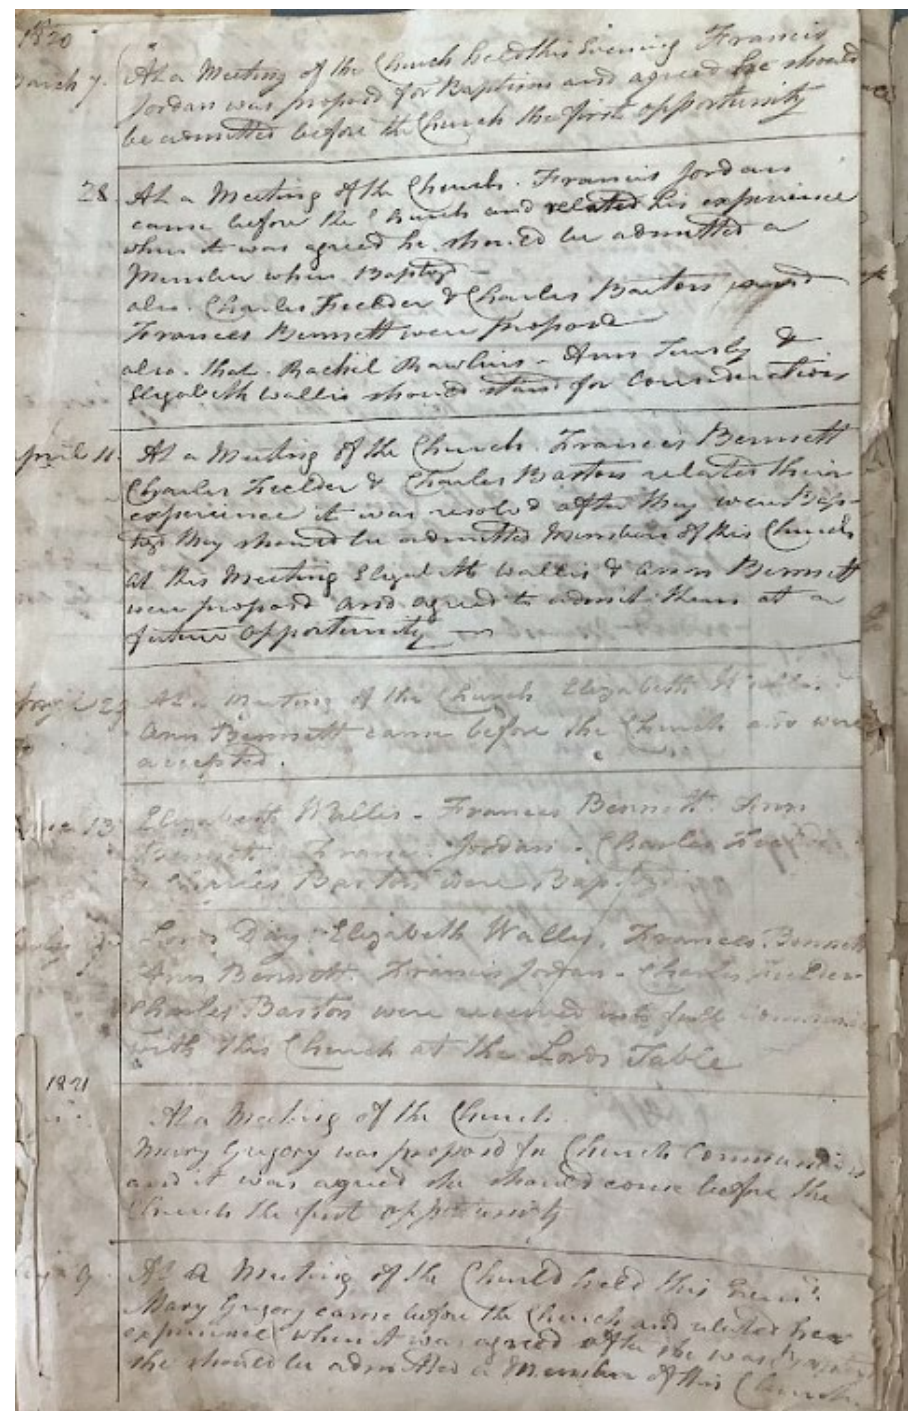 1820
March 7. At a Meeting of the Church held this Evening Francis
Jordan was propos'd for Baptism and agreed he should
be admitted before the Church the first opportunity
28 At a Meeting of the Church. Francis Jordan
came before the Church and related his experience
when it was agreed he should be admitted a
Member when Baptizd
also. Charles Feelder & Charles Barton and
Frances Bennett were propos'd
also. that. Rachel Rawlins - Ann &
Elizabeth Wallis should stand for Consideration
April 11. At a Meeting of the Church. Frances Bennett
Charles Feelder & Charles Barton related their
experience it was resolvd after they were Bap-
tizd they should be admitted Members of this Church
at this Meeting Elizabeth Wallis & Ann Bennett
were proposd and agreed to admit them at a
future opportunity
At a Meeting of the Church Elizabeth Wallis
Ann Bennett came before the Church and were
accepted.
13 Elizabeth Wallis - Frances Bennett. Ann
Bennett. Francis Jordan - Charles Feelder
& Charles Barton were Baptizd
Lords Day Elizabeth Wallis, Frances Bennett
Ann Bennett. Francis Jordan - Charles Feelder
Charles Barton were received into full Communion
with this Church at the Lords Table
1821
At a Meeting of the Church.
Mary Gregory was proposd for Church Communion
and it was agreed she should come before the
Church the first opportunity
9. At a Meeting of the Church held this Evening
Mary Gregory came before the Church and related her
experience when it was agreed after she was Baptized
she should be admitted a Member of this Church.